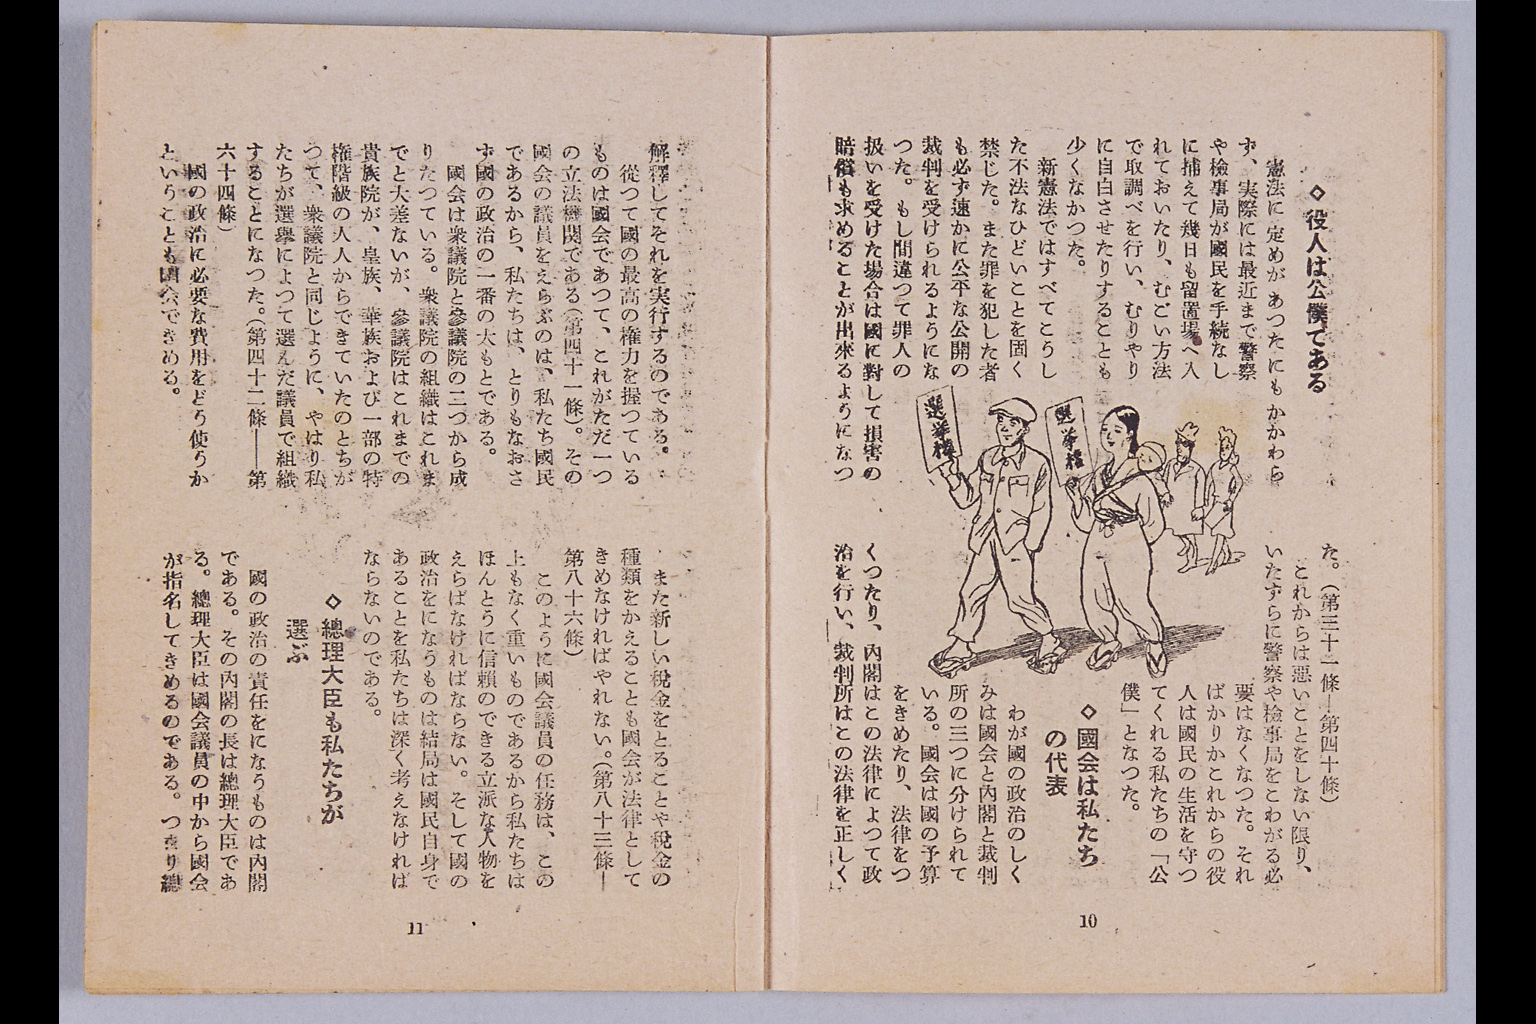 ◇役人は公僕である
憲法に定めが あつたにもかかわら
ず、実際には最近まで警察
や檢事局が國民を手続なし
に捕えて幾日も留置場へ入
れておいたり、むごい方法
で取調べを行い、むりやり
に自白させたりすることも
少くなかつた。
新憲法ではすべてこうし
た不法なひどいことを固く
禁じた。また罪を犯した者
も必ず速かに公平な公開の
裁判を受けられるようにな
つた。もし間違つて罪人の
扱いを受けた場合は國に對して損害の
賠償も求めることが出來るようになつ
選挙権
選挙権
た。(第三十一條―第四十條)
これからは悪いことをしない限り、
いたずらに警察や檢事局をこわがる必
要はなくなつた。それ
ばかりかこれからの役
人は國民の生活を守つ
てくれる私たちの「公
僕」となつた。
◇國会は私たち
の代表
わが國の政治のしく
みは國会と內閣と裁判
所の三つに分けられて
いる。國会は國の予算
をきめたり、法律をつ
くつたり、內閣はこの法律によつて政
治を行い、裁判所はこの法律を正しく
10
解釋してそれを実行するのである。
從つて國の最高の権力を握つている
ものは國会であつて、これがただ一つ
の立法機関である(第四十一條)。その
國会の議員をえらぶのは、私たち國民
であるから、私たちは、とりもなおさ
ず國の政治の一番の大もとである。
國会は衆議院と參議院の二つから成
りたつている。衆議院の組織はこれま
でと大差ないが、參議院はこれまでの
貴族院が、皇族、華族および一部の特
権階級の人人からできていたのとちが
つて、衆議院と同じように、やはり私
たちが選擧によつて選んだ議員で組織
することになつた。(第四十二條――第
六十四條)
國の政治に必要な費用をどう使うか
ということも國会できめる。
また新しい税金をとることや税金の
種類をかえることも國会が法律として
きめなければやれない。(第八十三條―
第八十六條)
このように國会議員の任務は、この
上もなく重いものであるから私たちは
ほんとうに信賴のできる立派な人物を
えらばなければならない。そして國の
政治をになうものは結局は國民自身で
あることを私たちは深く考えなければ
ならないのである。
◇總理大臣も私たちが
選ぶ
國の政治の責任をになうものは內閣
である。その內閣の長は總理大臣であ
る。總理大臣は國会議員の中から國会
が指名してきめるのである。つまり總
11